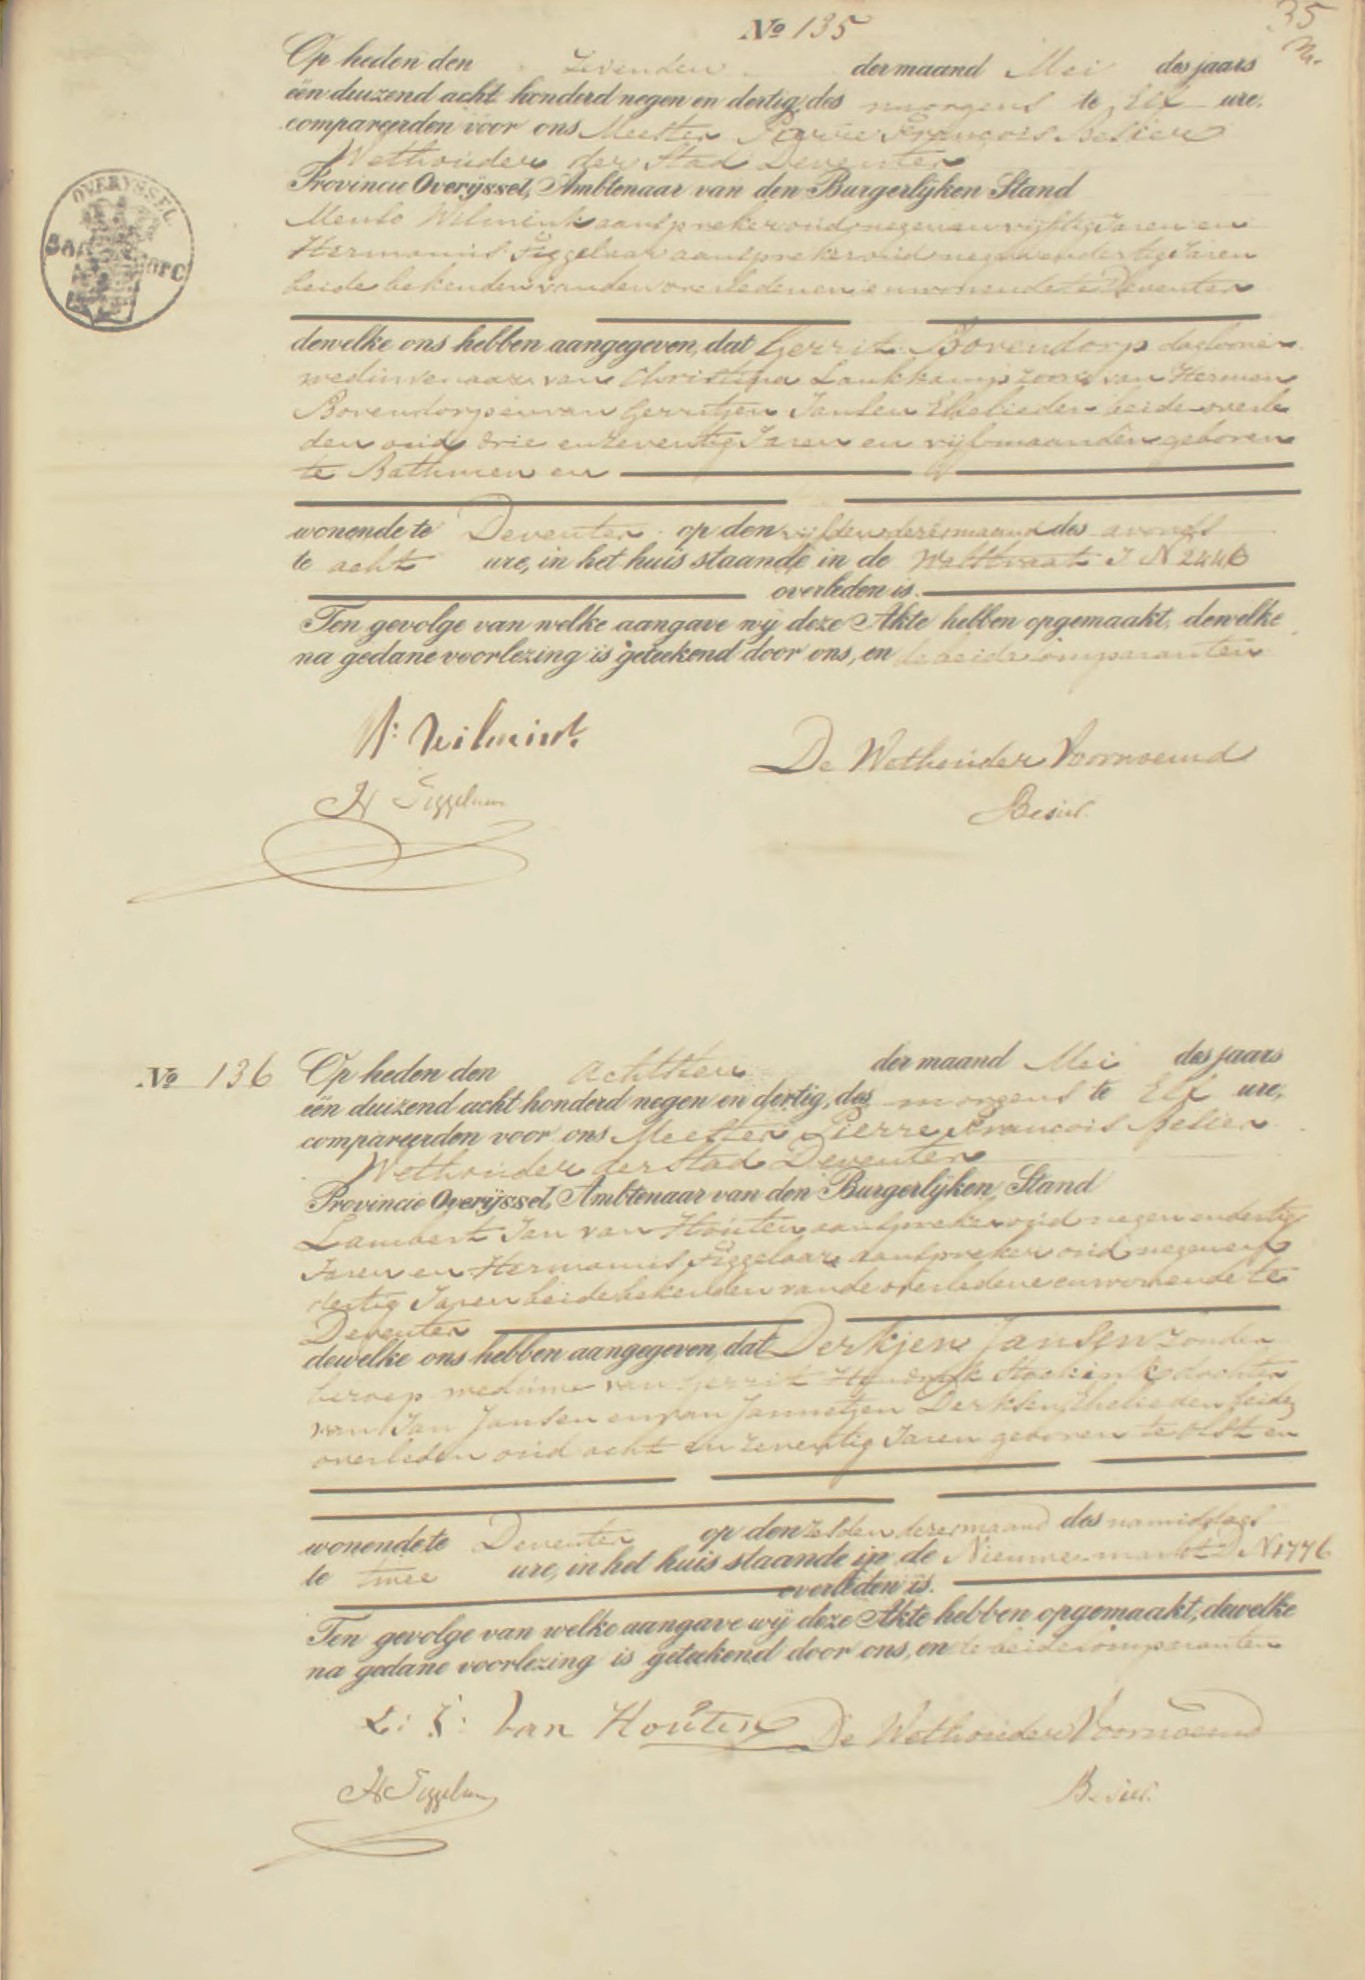 35
No 135
Op heden den zevenden der maand Mei des jaars
een duizend acht honderd negen en dertig, des morgens te Elf ure,
compareerden voor ons Meester Pierre François Besier
Wethouder der Stad Deventer
Provincie Overÿssel, Ambtenaar van den Burgerlijken Stand
OVERYSSEL
Wilmink aanspreker oud negenenvijftig Jaren en
Hermannus Figgelaar aanspreker oud negenendertig Jaren
beide bekenden van den overledenen en wonende te Deventer
dewelke ons hebben aangegeven, dat Gerrit Bovendorp daglooner
weduwenaar van Christina Lankkamp zoon van Hermen
Bovendorp en van Gerritjen Jansen Ehelieden beide overle
den oud drie en zeventig Jaren en vijf maanden geboren
te Bathmen en
wonende te Deventer op den vijfden dezer maand des avonds
te acht ure, in het huis staande in de J N 2446
overleden is.
Ten gevolge van welke aangave wij deze Akte hebben opgemaakt, dewelke
na gedane voorlezing is geteekend door ons, en de beide Comparanten
Wilmink
H Figgelaar
De Wethouder Voornoemd
Besier
No 136 Op heden den achtsten der maand Mei des jaars
een duizend acht honderd negen en dertig, des morgens te Elf ure,
compareerden voor ons Meester Pierre François Besier
Wethouder der Stad Deventer
Provincie Overÿssel, Ambtenaar van den Burgerlijken Stand
Lambert Jan van Houten aanspreker oud negen en dertig
Jaren en Hermannus Figgelaar aanspreker oud negenen
dertig Jaren beide bekenden van de overledene en wonende te
Deventer
dewelke ons hebben aangegeven, dat Derkjen Jansen zonder
beroep weduwe van Gerrit Hendrik dochter
van Jan Jansen en van Jannetjen Derksen Ehelieden beide
overleden oud acht en zeventig Jaren geboren te Olst en
wonende te Deventer op den zesden dezer maand des namiddags
te twee ure, in het huis staande in de Nieuwe markt D N 1776
overleden is.
Ten gevolge van welke aangave wij deze Akte hebben opgemaakt, dewelke
na gedane voorlezing is geteekend door ons, en de beide Comparanten
L: J: van Houten De Wethouder Voornoemd
H Figgelaar
Besier